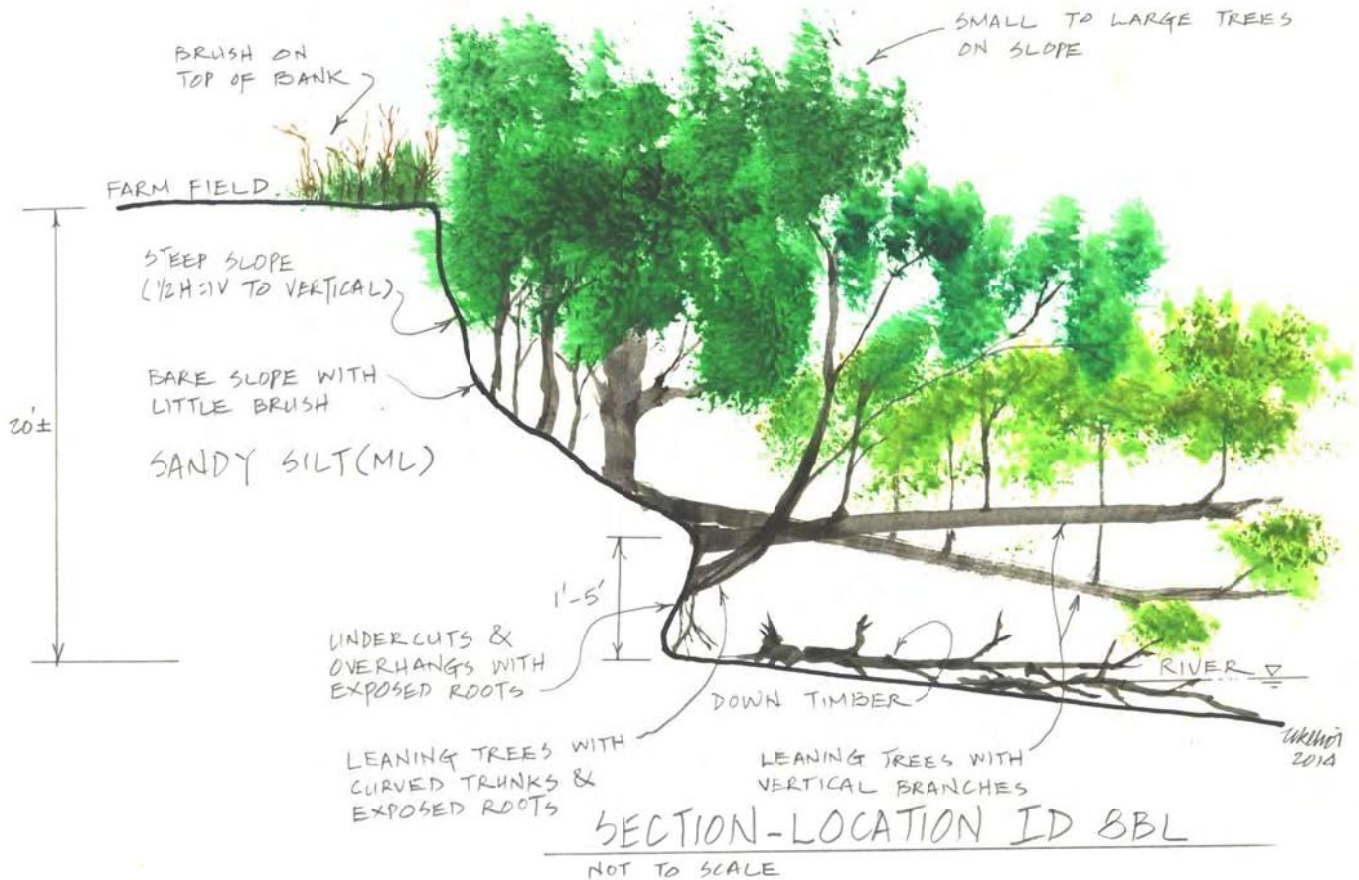 SMALL TO LARGE TREES
ON SLOPE
BRUSH ON
TOP OF BANK
FARM FIELD
STEEP SLOPE
(1/2H:1V TO VERTICAL)
BARE SLOPE WITH
LITTLE BRUSH
20'±
SANDY SILT (ML)
1'-5'
UNDERCUTS &
OVERHANGS WITH
EXPOSED ROOTS
RIVER
DOWN TIMBER
LEANING TREES WITH
CURVED TRUNKS &
EXPOSED ROOTS
LEANING TREES WITH
VERTICAL BRANCHES
2014
SECTION-LOCATION ID 8BL
NOT TO SCALE